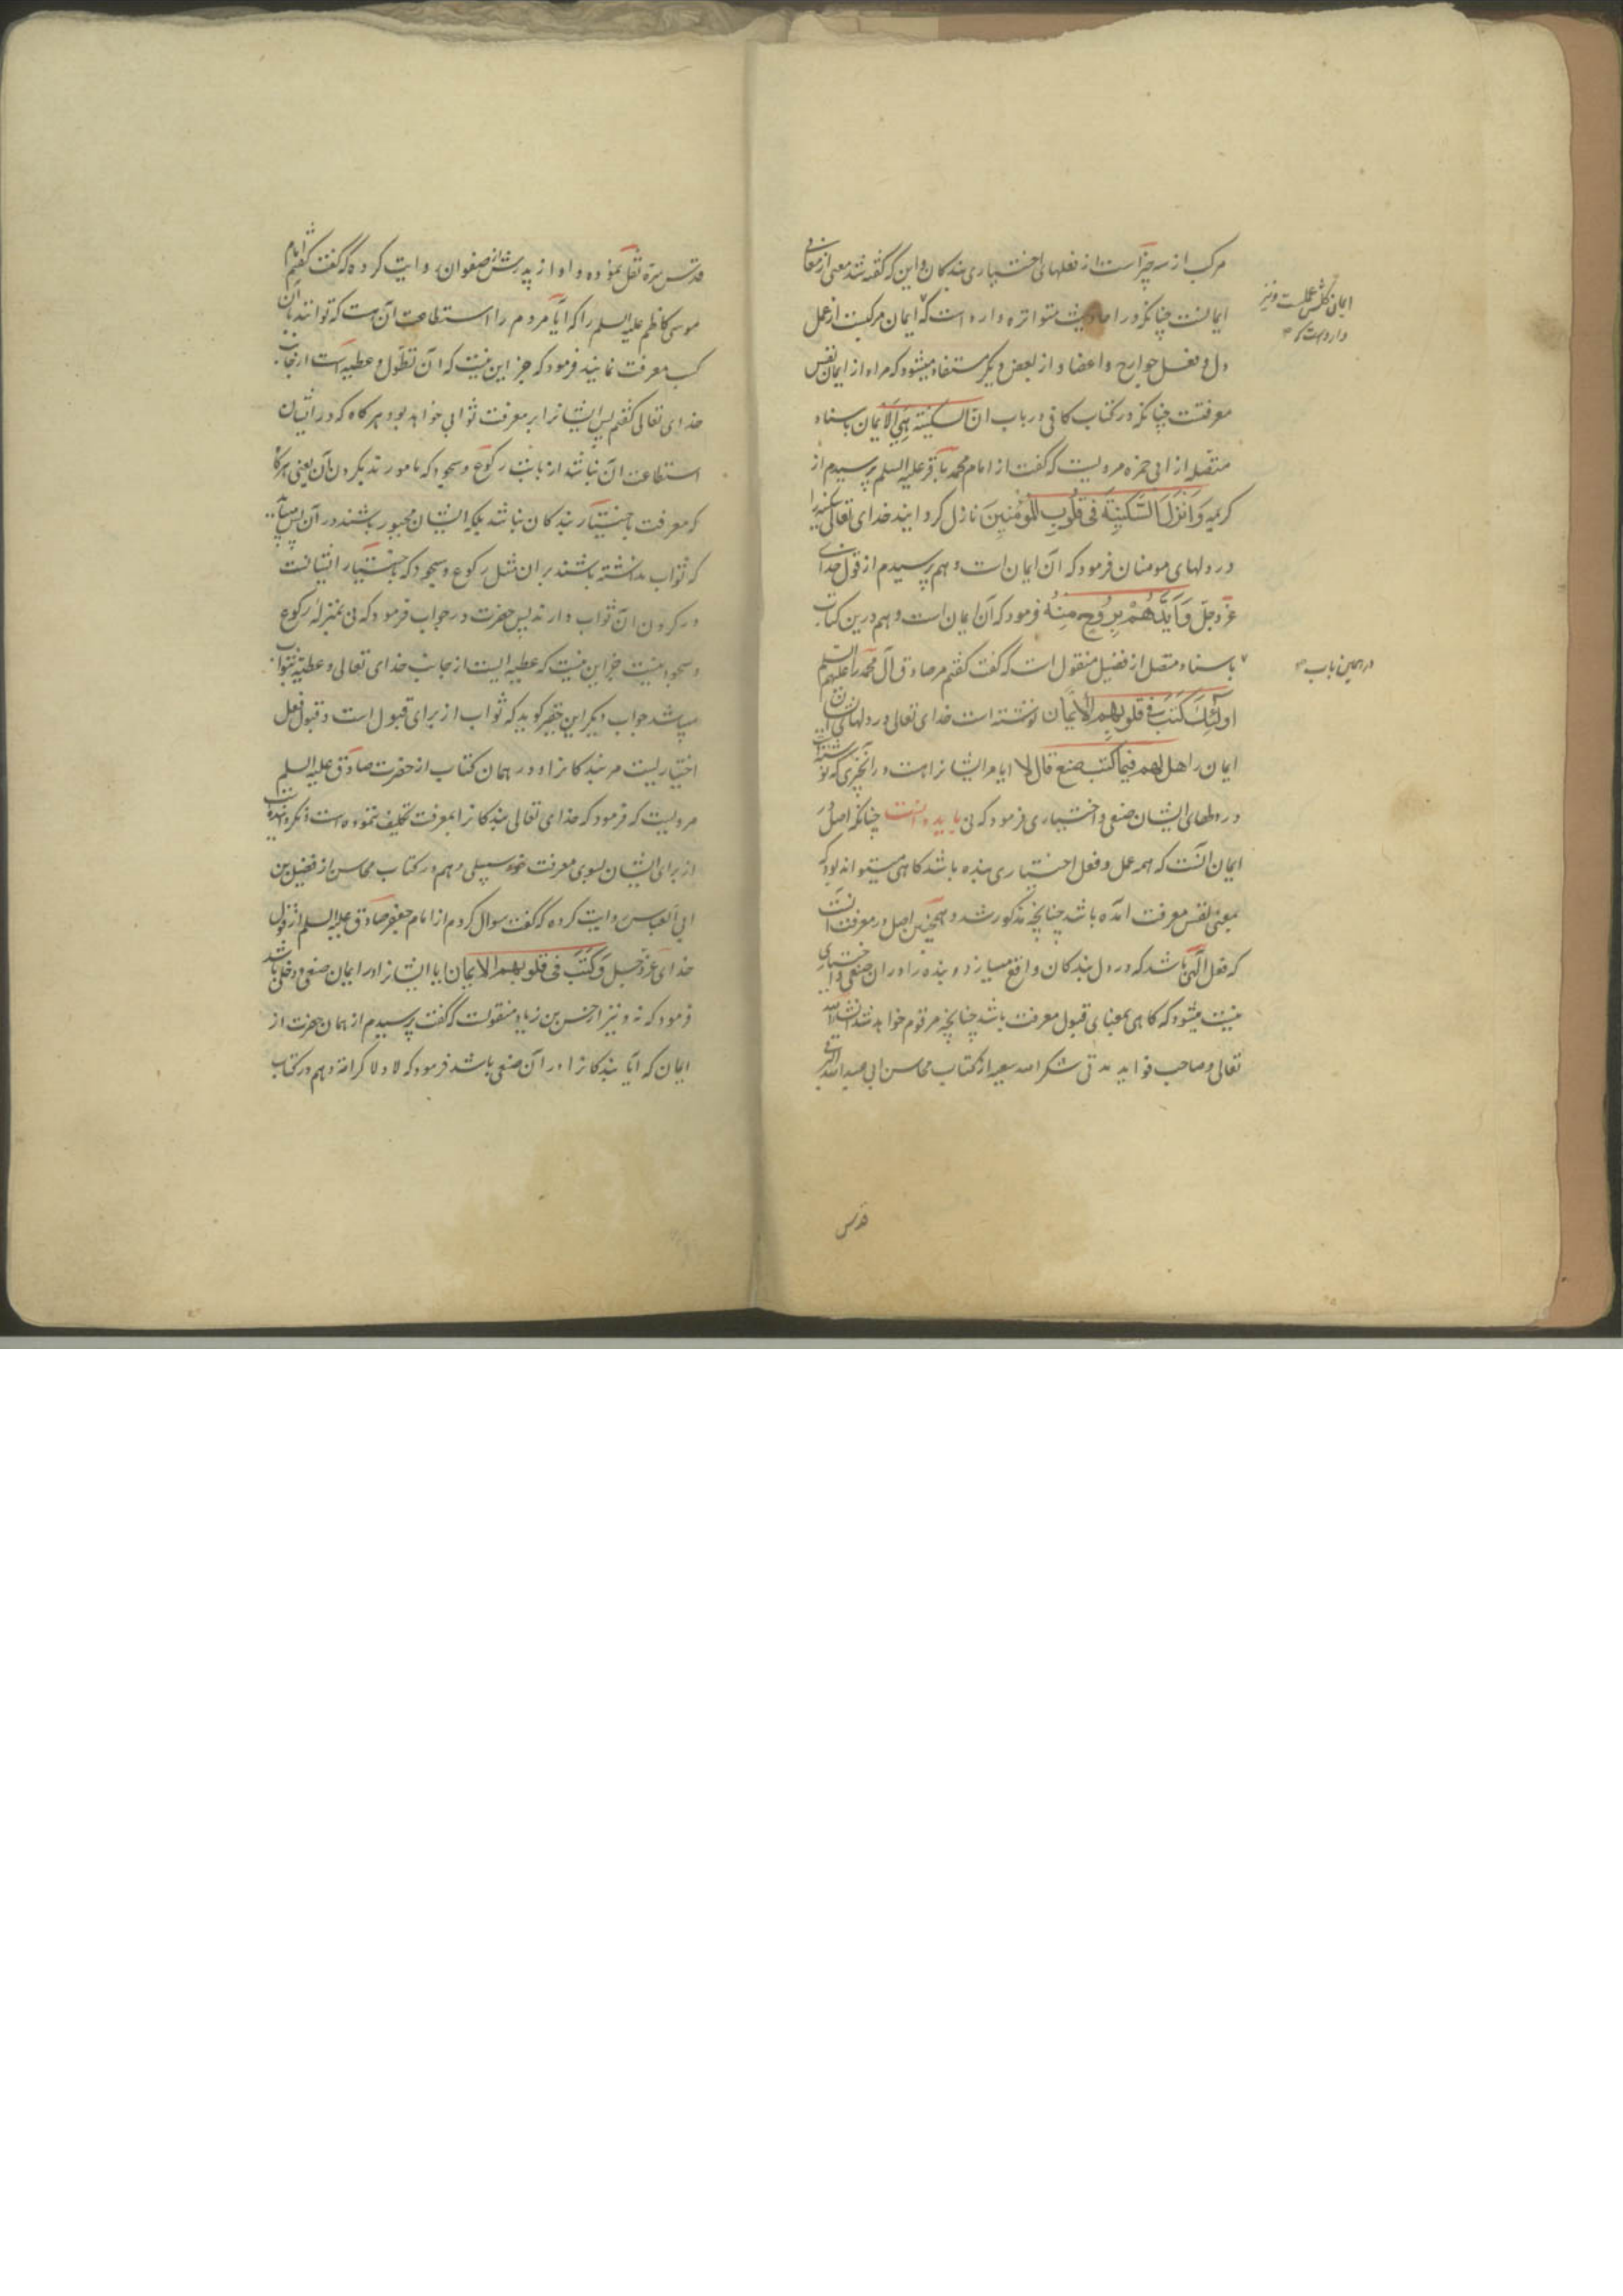 مرکب از سه چیز است از فعلهای اختیاری بندکان و این که گفته شد معنی از معانی
ایمانست چنانکه در احادیث متواتره وارد است که ایمان مرکبست از عمل
ایمان کلش عملست و نیز
وارد است که
دل و فعل جوارح و اعضا و از بعض دیکر مستفاد میشود که مراد از ایمان نفس
معرفتست چنانکه در کتاب کافی در باب انّ السکینة هی الایمان باسناد
متصله از ابی حمزه مرویست که گفت از امام محمد باقر علیه السلم پرسیدم از
کریمه وَانْزَلَ السَّکینَةَ فی قُلُوبِ المُؤمِنینَ نازل کردانید خدای تعالی سکینه را
در دلهای مومنان فرمود که آن ایمان است و هم پرسیدم از قول خدای
عزّ وجلّ وَاَیَّدَهُمْ بِرُوحٍ مِنهُ فرمود که آن ایمان است و هم درین کتاب
باسناد متصل از فضیل منقول است که گفت گفتم مر صادق آل محمد را علیهم السلم
در همین باب
اولئِکَ کَتَبَ فی قلوبهم الایمان نوشته است خدای تعالی در دلهای ایشان
ایمان را هل لهم فیما کتب صنع قال لا ایا مر ایشانرا هست در آنچیزی که نوشته است
در دلهای ایشان صنعی و اختیاری فرمود که نی باید دانست چنانکه اصل در
ایمان آنست که همه عمل و فعل اختیاری بنده باشد کاهی میتواند بود که
بمعنی نفس معرفت آمده باشد چنانچه مذکور شد و همچنین اصل در معرفت آنست
که فعل الهی باشد که در دل بندکان واقع میسازد و بنده را در ان صنعی و اختیاری
نیست میشود که کاهی بمعنای قبول معرفت باشد چنانچه مرقوم خواهد شد انشاء الله
تعالی و صاحب فواید مدنی شکر الله سعیه از کتاب محاسن ابی عبد الله البرقی
قدس
قدّس سرّه نقل نموده و او از پدرش از صفوان روایت کرده که گفت گفتم امام
موسی کاظم علیه السلم را که ایا مردم را استطاعت آن هست که توانند بآن
کسب معرفت نمایند فرمود که جز این نیست که آن تطوّل و عطیه است از جانب
خدای تعالی گفتم پس ایشانرا بر معرفت ثوابی خواهد بود هر کاه که در ایشان
استطاعت ان نباشد از بابت رکوع و سجود که مامورند بکردن آن یعنی هر کاه
که معرفت باختیار بندکان نباشد بلکه ایشان مجبور باشند در آن پس میباید
که ثواب نداشته باشند بر ان مثل رکوع و سجود که باختیار ایشانست
و در کردن ان ثواب دارند پس حضرت در جواب فرمود که نی بمنزلهٔ رکوع
و سجود نیست جز این نیست که عطیه ایست از جانب خدای تعالی و عطیه بثواب
میباشد جواب دیکر این حقیر کوید که ثواب از برای قبول است و قبول فعل
اختیاریست مر بندکانرا و در همان کتاب از حضرت صادق علیه السلم
مرویست که فرمود که خدای تعالی بندکانرا بمعرفت تکلیف ننموده است و نکردانیده است
از برای ایشان بسوی معرفت خود سبیلی و هم در کتاب محاسن از فضیل بن
ابی العباس روایت کرده که گفت سوال کردم از امام جعفر صادق علیه السلم از قول
خدای عزّ وجلّ وَکَتَبَ فی قلوبهم الایمان ایا ایشانرا در ایمان صنعی و دخلی باشد
فرمود که نه و نیز از حسن بن زیاد منقولست که گفت پرسیدم از همان حضرت از
ایمان که آیا بندکانرا در آن صنعی باشد فرمود که لا و لا کرامة و هم در کتاب